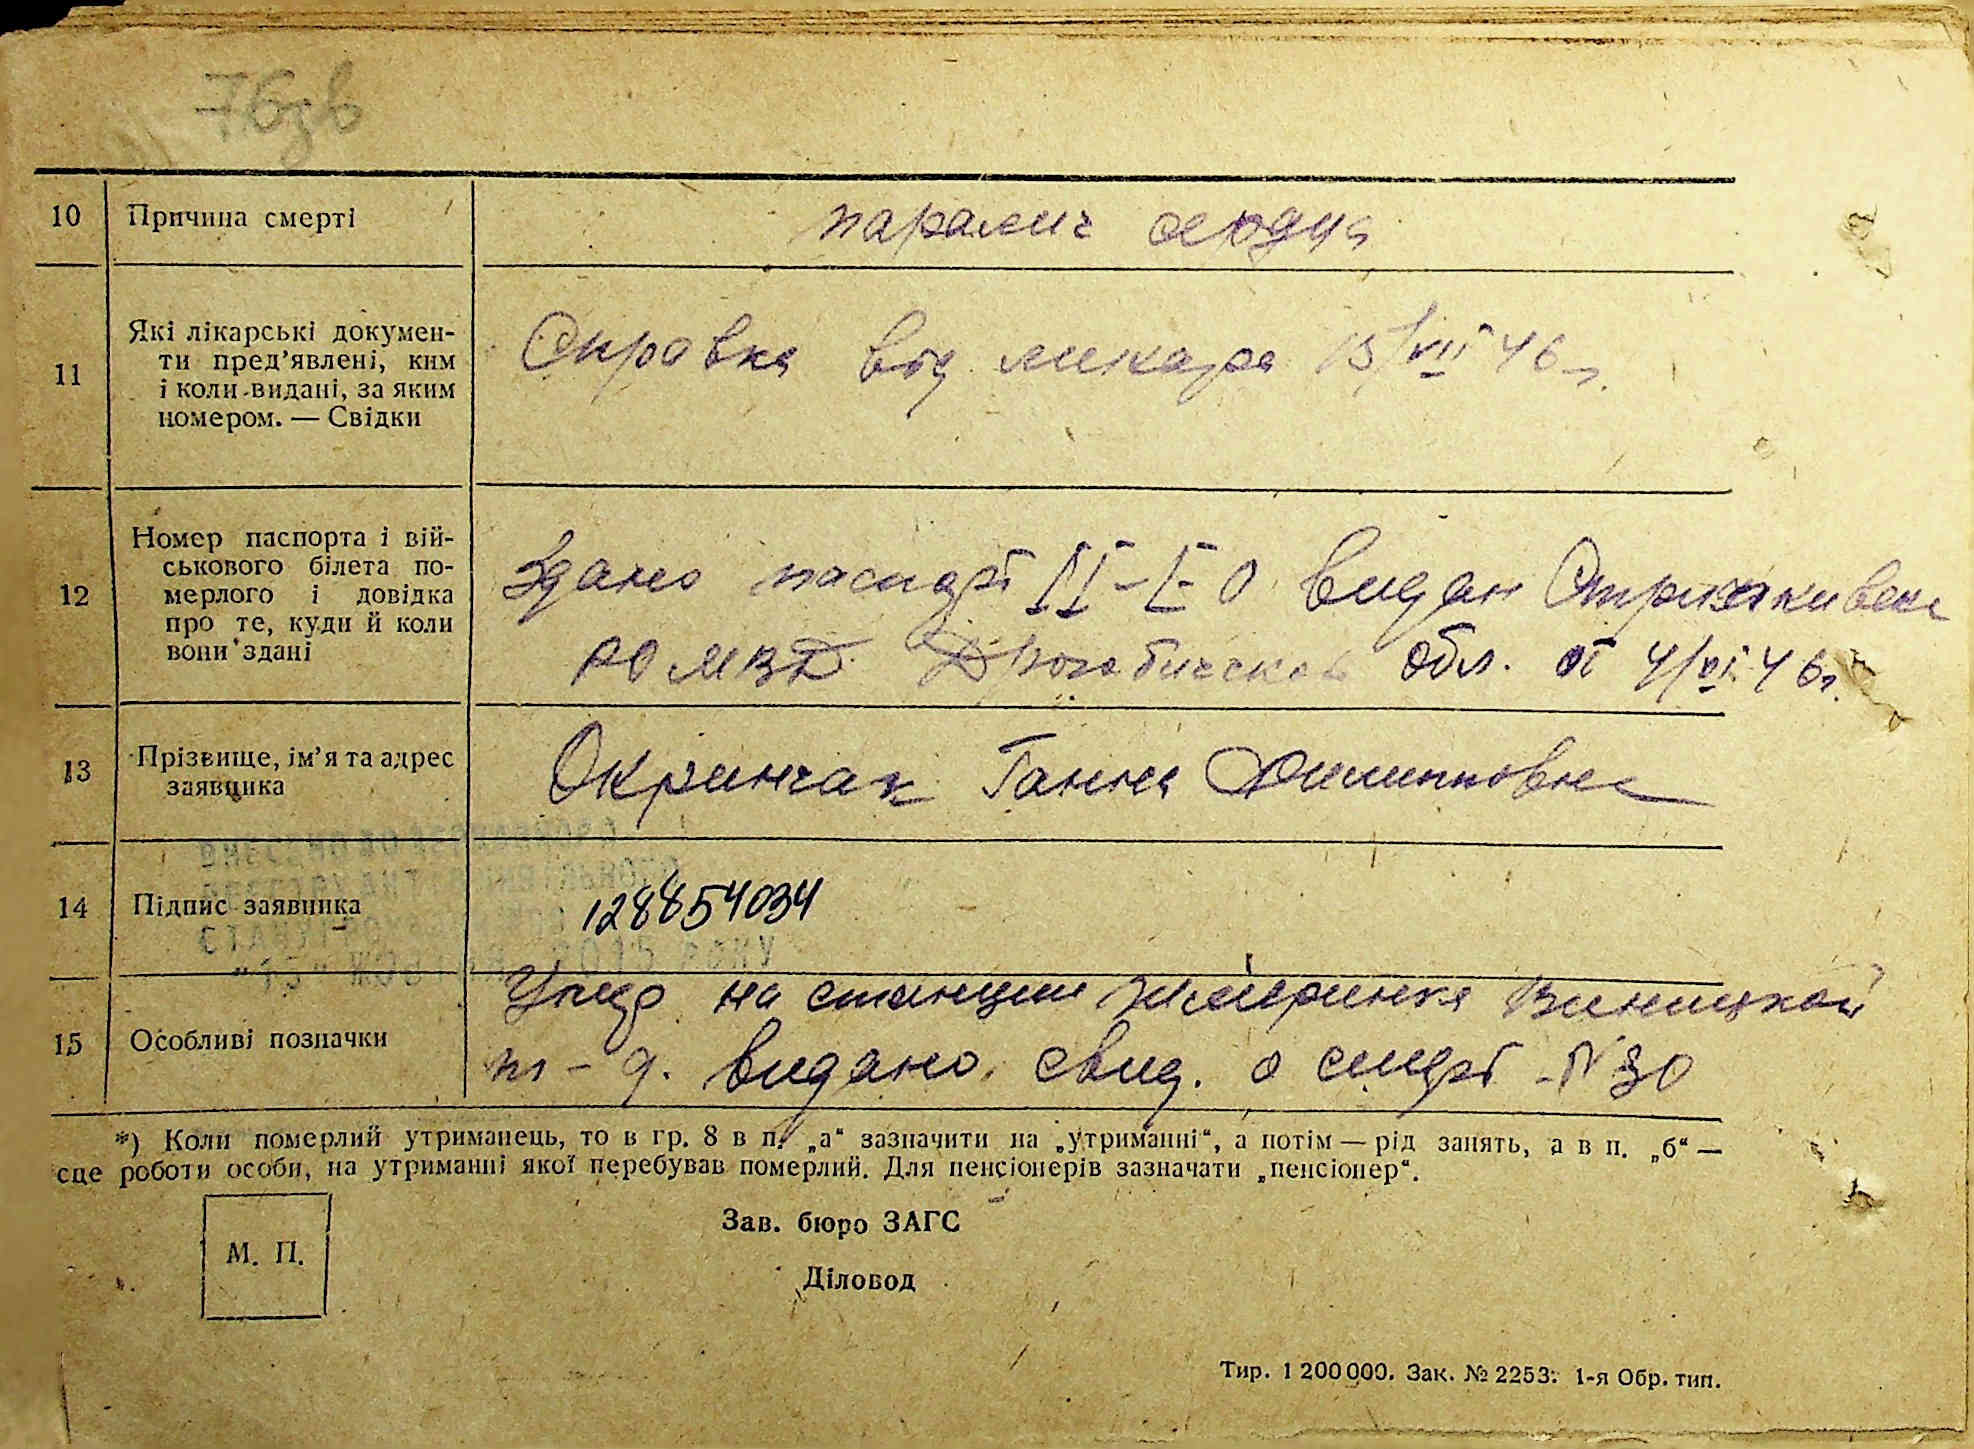 76зв
10 Причина смерті паралич сердца
11 Які лікарські докумен-
ти пред’явлені, ким
і коли видані, за яким
номером. — Свідки
Справка від ликара 15/VII 46 г.
12 Номер паспорта і вій-
ськового білета по-
мерлого і довідка
про те, куди й коли
вони здані
Здано паспорт II-I-0 видан
РО МВД Дрогобической обл. от 4/VI-46г.
13 Прізвище, ім’я та адрес
заявника
Окринчак Ганна Филипповна
14 Підпис заявника 128854034
15 Особливі позначки
на станции Жмеринка Виницкой
ж-д. видано свид. о смерт N 30
*) Коли померлий утриманець, то в гр. 8 в п. „а“ зазначити на „утриманні“, а потім — рід занять, а в п. „б“ —
сце роботи особи, на утриманні якої перебував померлий. Для пенсіонерів зазначати „пенсіонер“.
М. П.
Зав. бюро ЗАГС
Діловод
Тир. 1 200 000. Зак. № 2253. 1-я Обр. тип.